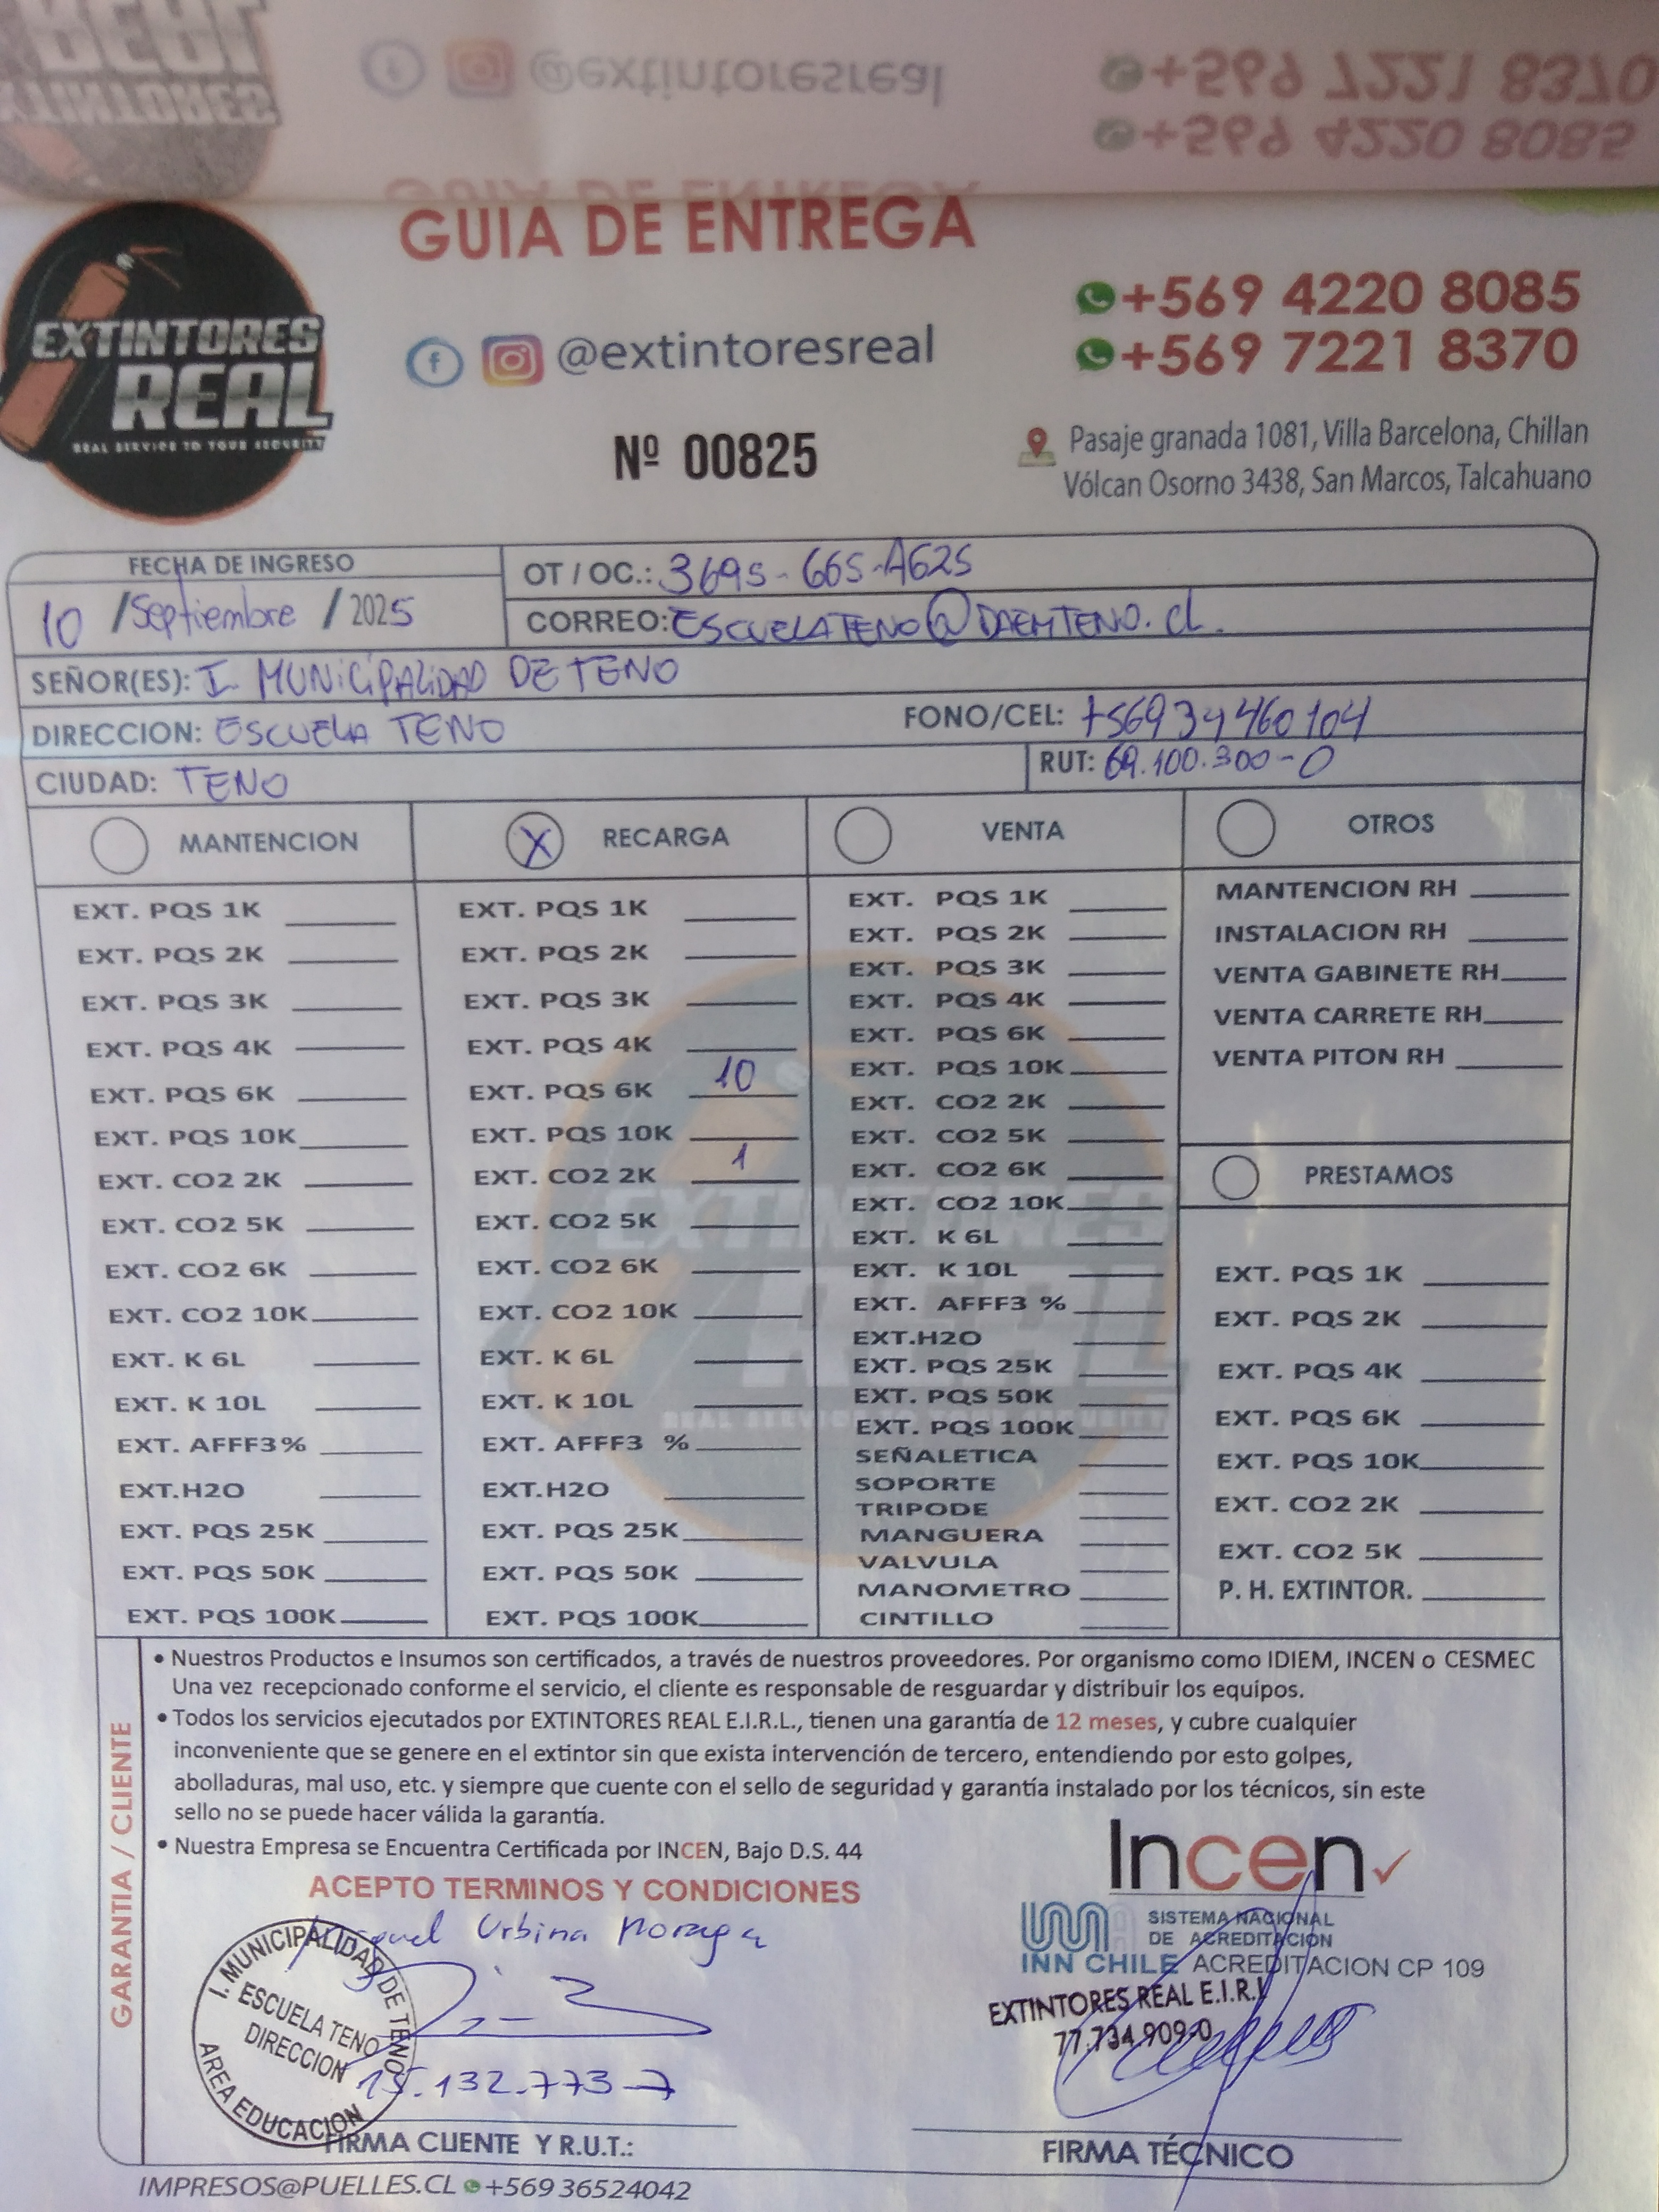 @extintoresreal
+569 7221 8370
+569 4220 8085
GUIA DE ENTREGA
EXTINTORES
REAL
REAL SERVICE TO YOUR SECURITY
@extintoresreal
+569 4220 8085
+569 7221 8370
Nº 00825
Pasaje granada 1081, Villa Barcelona, Chillan
Vólcan Osorno 3438, San Marcos, Talcahuano
FECHA DE INGRESO
10 / Septiembre / 2025
OT / OC.: 3695-665-AG25
CORREO: ESCUELATENO@DAEMTENO.cl.
SEÑOR(ES): I. MUNICIPALIDAD DE TENO
DIRECCION: ESCUELA TENO
FONO/CEL: +56934460104
CIUDAD: TENO
RUT: 69.100.300-0
MANTENCION
EXT. PQS 1K
EXT. PQS 2K
EXT. PQS 3K
EXT. PQS 4K
EXT. PQS 6K
EXT. PQS 10K
EXT. CO2 2K
EXT. CO2 5K
EXT. CO2 6K
EXT. CO2 10K
EXT. K 6L
EXT. K 10L
EXT. AFFF3%
EXT.H2O
EXT. PQS 25K
EXT. PQS 50K
EXT. PQS 100K
X RECARGA
EXT. PQS 1K
EXT. PQS 2K
EXT. PQS 3K
EXT. PQS 4K
EXT. PQS 6K 10
EXT. PQS 10K
EXT. CO2 2K 1
EXT. CO2 5K
EXT. CO2 6K
EXT. CO2 10K
EXT. K 6L
EXT. K 10L
EXT. AFFF3 %
EXT.H2O
EXT. PQS 25K
EXT. PQS 50K
EXT. PQS 100K
VENTA
EXT. PQS 1K
EXT. PQS 2K
EXT. PQS 3K
EXT. PQS 4K
EXT. PQS 6K
EXT. PQS 10K
EXT. CO2 2K
EXT. CO2 5K
EXT. CO2 6K
EXT. CO2 10K
EXT. K 6L
EXT. K 10L
EXT. AFFF3 %
EXT.H2O
EXT. PQS 25K
EXT. PQS 50K
EXT. PQS 100K
SEÑALETICA
SOPORTE
TRIPODE
MANGUERA
VALVULA
MANOMETRO
CINTILLO
OTROS
MANTENCION RH
INSTALACION RH
VENTA GABINETE RH
VENTA CARRETE RH
VENTA PITON RH
PRESTAMOS
EXT. PQS 1K
EXT. PQS 2K
EXT. PQS 4K
EXT. PQS 6K
EXT. PQS 10K
EXT. CO2 2K
EXT. CO2 5K
P. H. EXTINTOR.
GARANTIA / CLIENTE
• Nuestros Productos e Insumos son certificados, a través de nuestros proveedores. Por organismo como IDIEM, INCEN o CESMEC
Una vez recepcionado conforme el servicio, el cliente es responsable de resguardar y distribuir los equipos.
• Todos los servicios ejecutados por EXTINTORES REAL E.I.R.L., tienen una garantía de 12 meses, y cubre cualquier
inconveniente que se genere en el extintor sin que exista intervención de tercero, entendiendo por esto golpes,
abolladuras, mal uso, etc. y siempre que cuente con el sello de seguridad y garantía instalado por los técnicos, sin este
sello no se puede hacer válida la garantía.
• Nuestra Empresa se Encuentra Certificada por INCEN, Bajo D.S. 44
ACEPTO TERMINOS Y CONDICIONES
Urbina Moraga
I. MUNICIPALIDAD DE TENO
ESCUELA TENO
DIRECCION
AREA EDUCACION
15.132.773-7
FIRMA CLIENTE Y R.U.T.:
Incen
SISTEMA NACIONAL
DE ACREDITACION
INN CHILE ACREDITACION CP 109
EXTINTORES REAL E.I.R.L
77.734.909-0
FIRMA TÉCNICO
IMPRESOS@PUELLES.CL +569 36524042